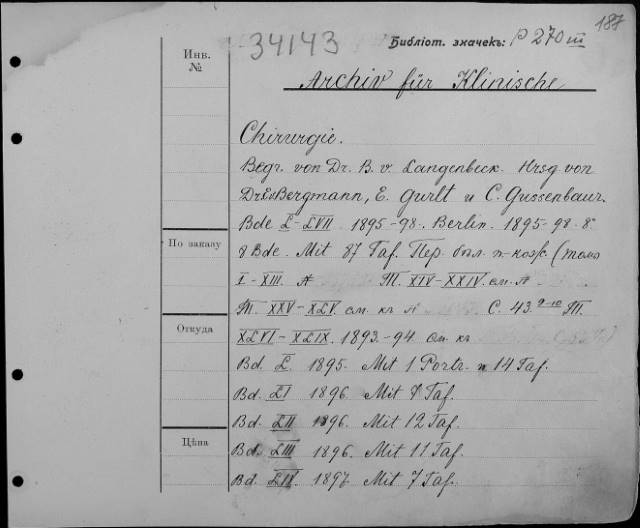 187
34143 Библіот. значекъ: P 270 III
Инв.
№
Archiv für Klinische
Chirurgie.
Begr. von Dr. B. v. Langenbeck. Hrsg von
Dr E. v Bergmann, E. Gurlt u C. Gussenbaur.
Bde L-LVII 1895-98. Berlin. 1895-98. 8.
По заказу
8 Bde. Mit 87 Taf. Пер. бѣл. п-кож. (томъ
I-XIII. Т. XIV-XXIV. см.
Т. XXV-XLV. см. къ С. 43. Т.
Откуда
XLVI-XLIX. 1893-94. см. къ
Bd. L. 1895. Mit 1 Portr. и 14 Taf.
Bd. LI 1896. Mit 8 Taf.
Bd. LII 1896. Mit 12 Taf.
Цѣна
Bd. LIII 1896. Mit 11 Taf.
Bd. LIV. 1897. Mit 7 Taf.